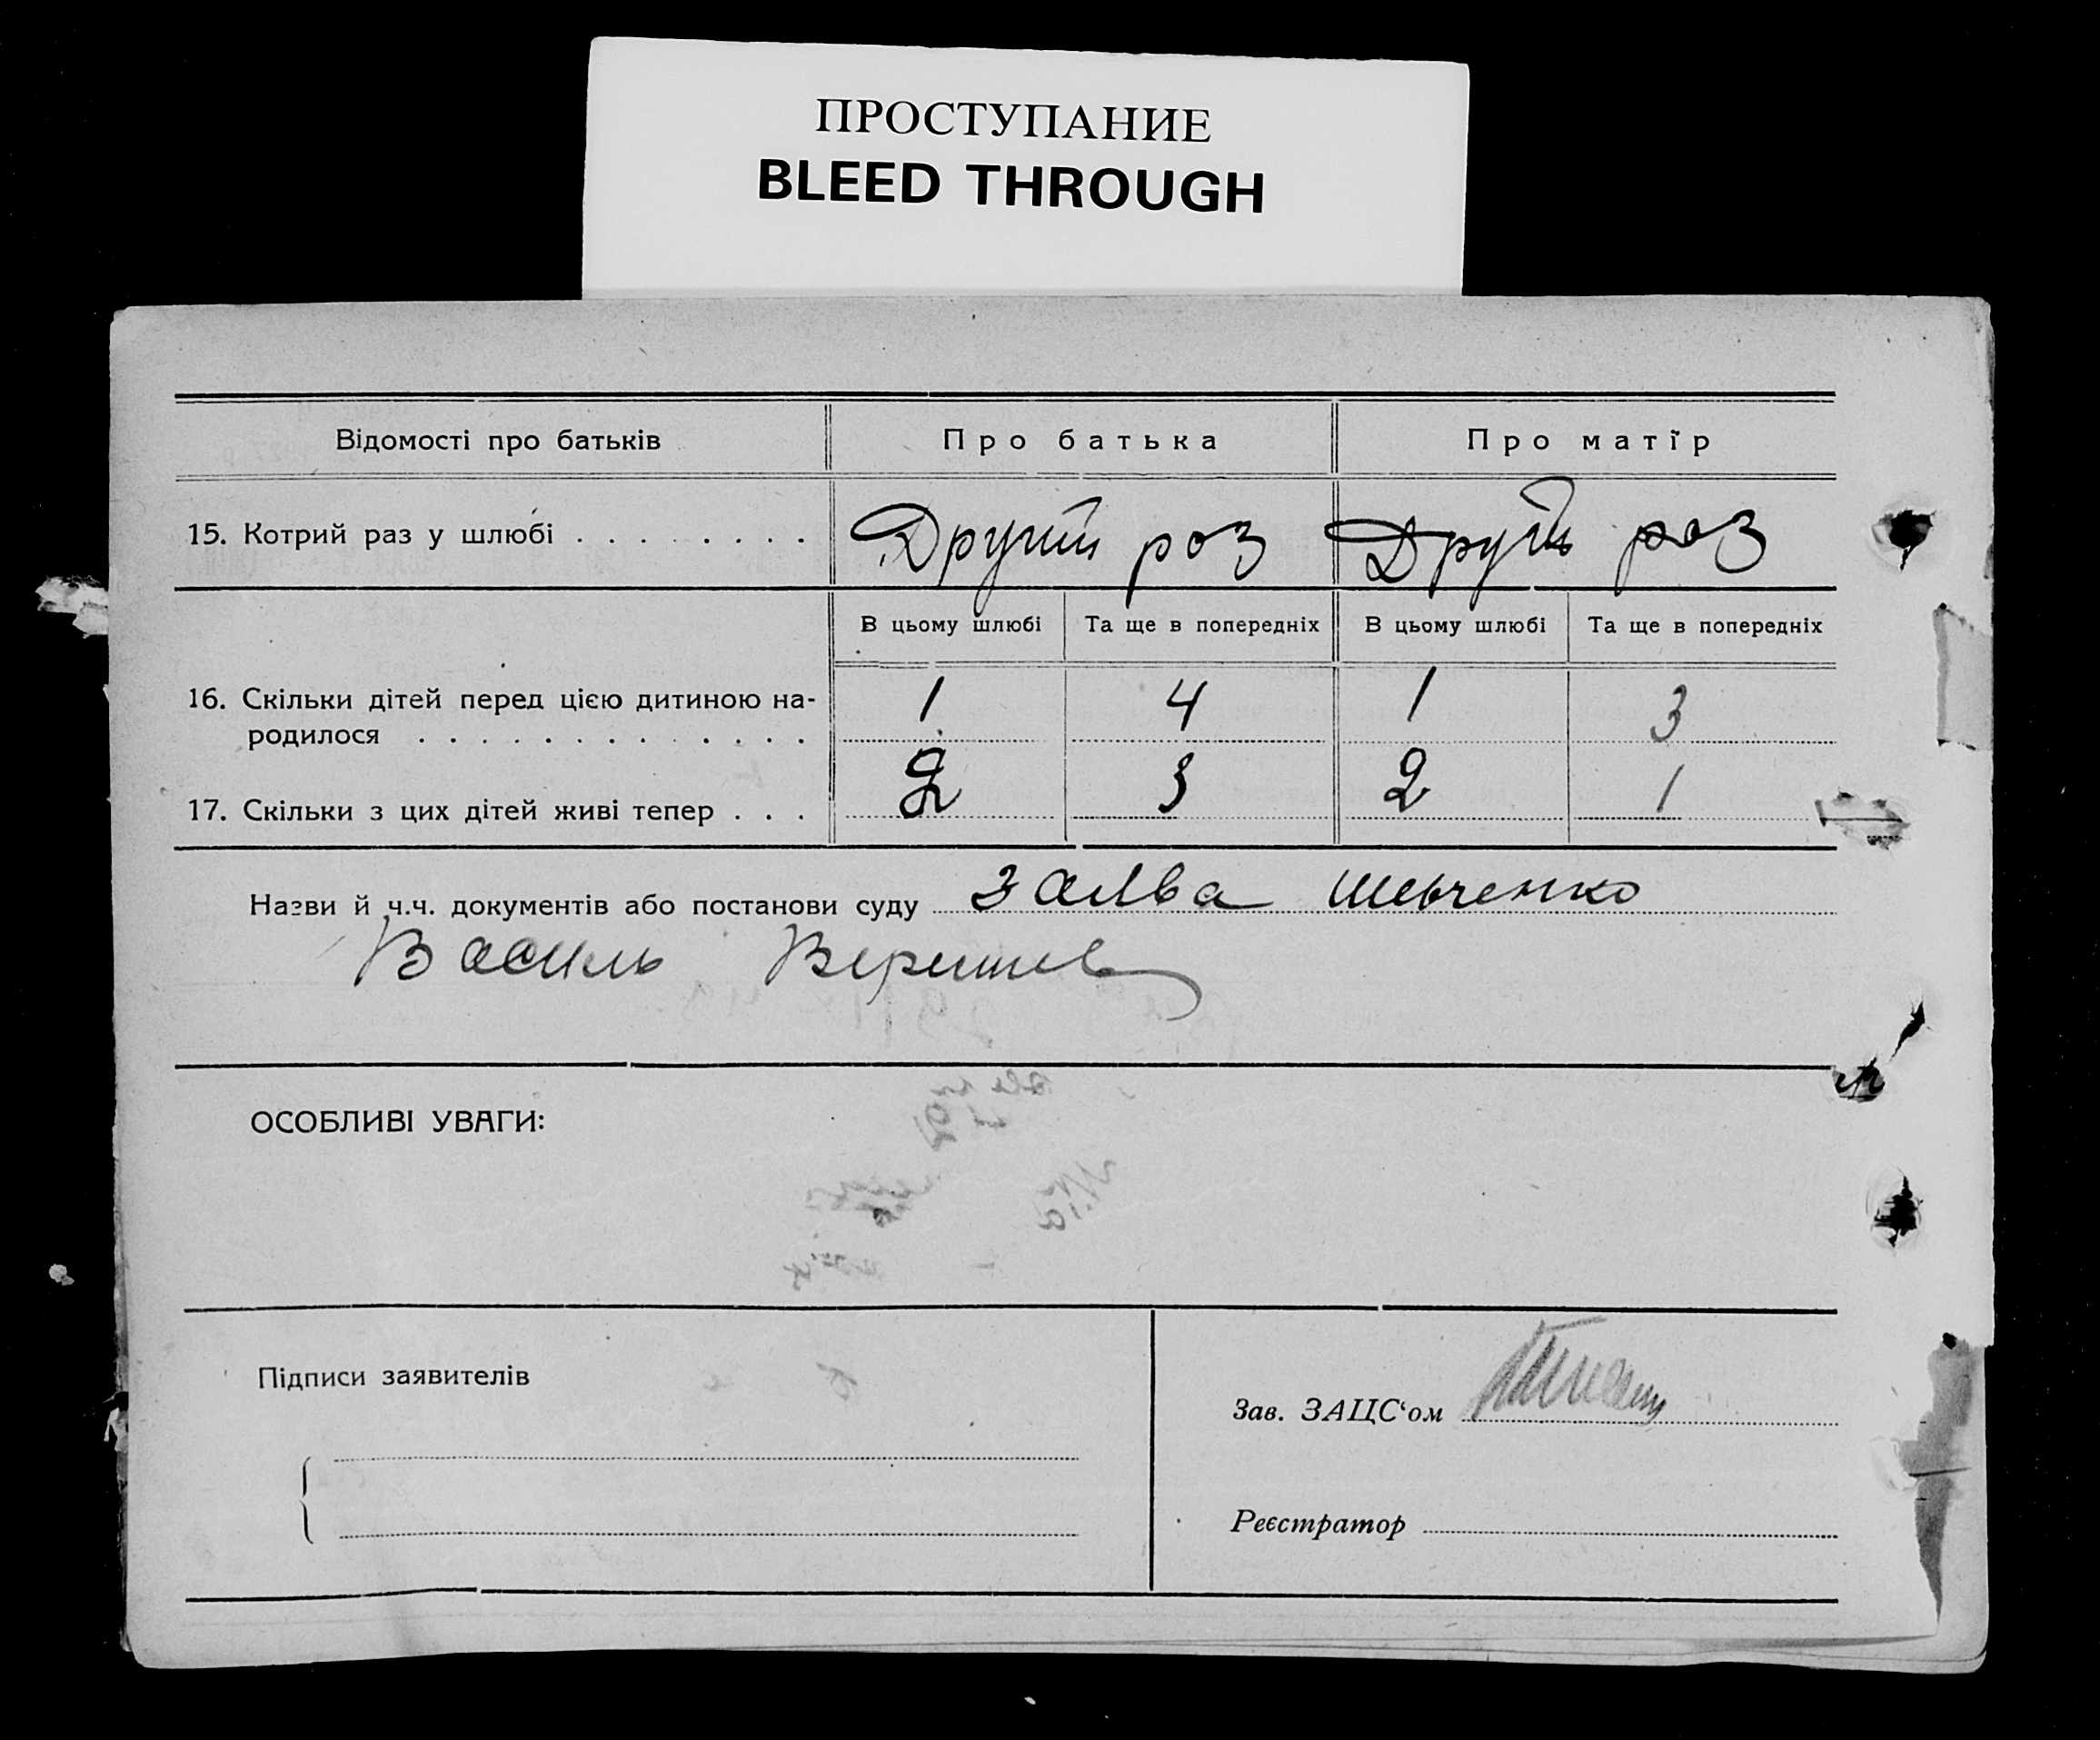 ПРОСТУПАНИЕ
BLEED THROUGH
Відомості про батьків Про батька Про матїр
15. Котрий раз у шлюбі . . . . . . . . Другий роз Другй роз
В цьому шлюбі Та ще в попередніх В цьому шлюбі Та ще в попередніх
16. Скільки дітей перед цією дитиною на- 1 4 1 3
родилося . . . . . . . . . . . . .
17. Скільки з цих дітей живі тепер . . . 2 3 2 1
Назви й ч.ч. документів або постанови суду заява Шевченко
Василь
ОСОБЛИВІ УВАГИ:
Підписи заявителів
Зав. ЗАЦС‘ом
Реєстратор